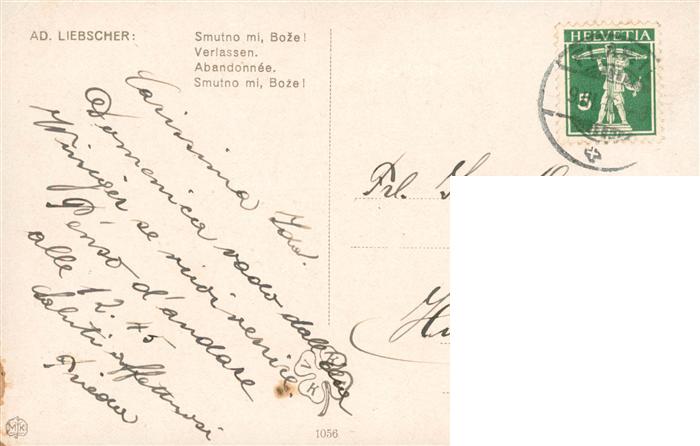 AD. LIEBSCHER: Smutno mi, Bože!
Verlassen.
Abandonnée.
Smutno mi, Bože!
HELVETIA
5
Carissima Ida.
Domenica vado dalla
Winiger se vuoi venire.
Penso d'andare
alle 12.45
Saluti affettuosi
Frieda
Frl.
K
V K
MK
1056